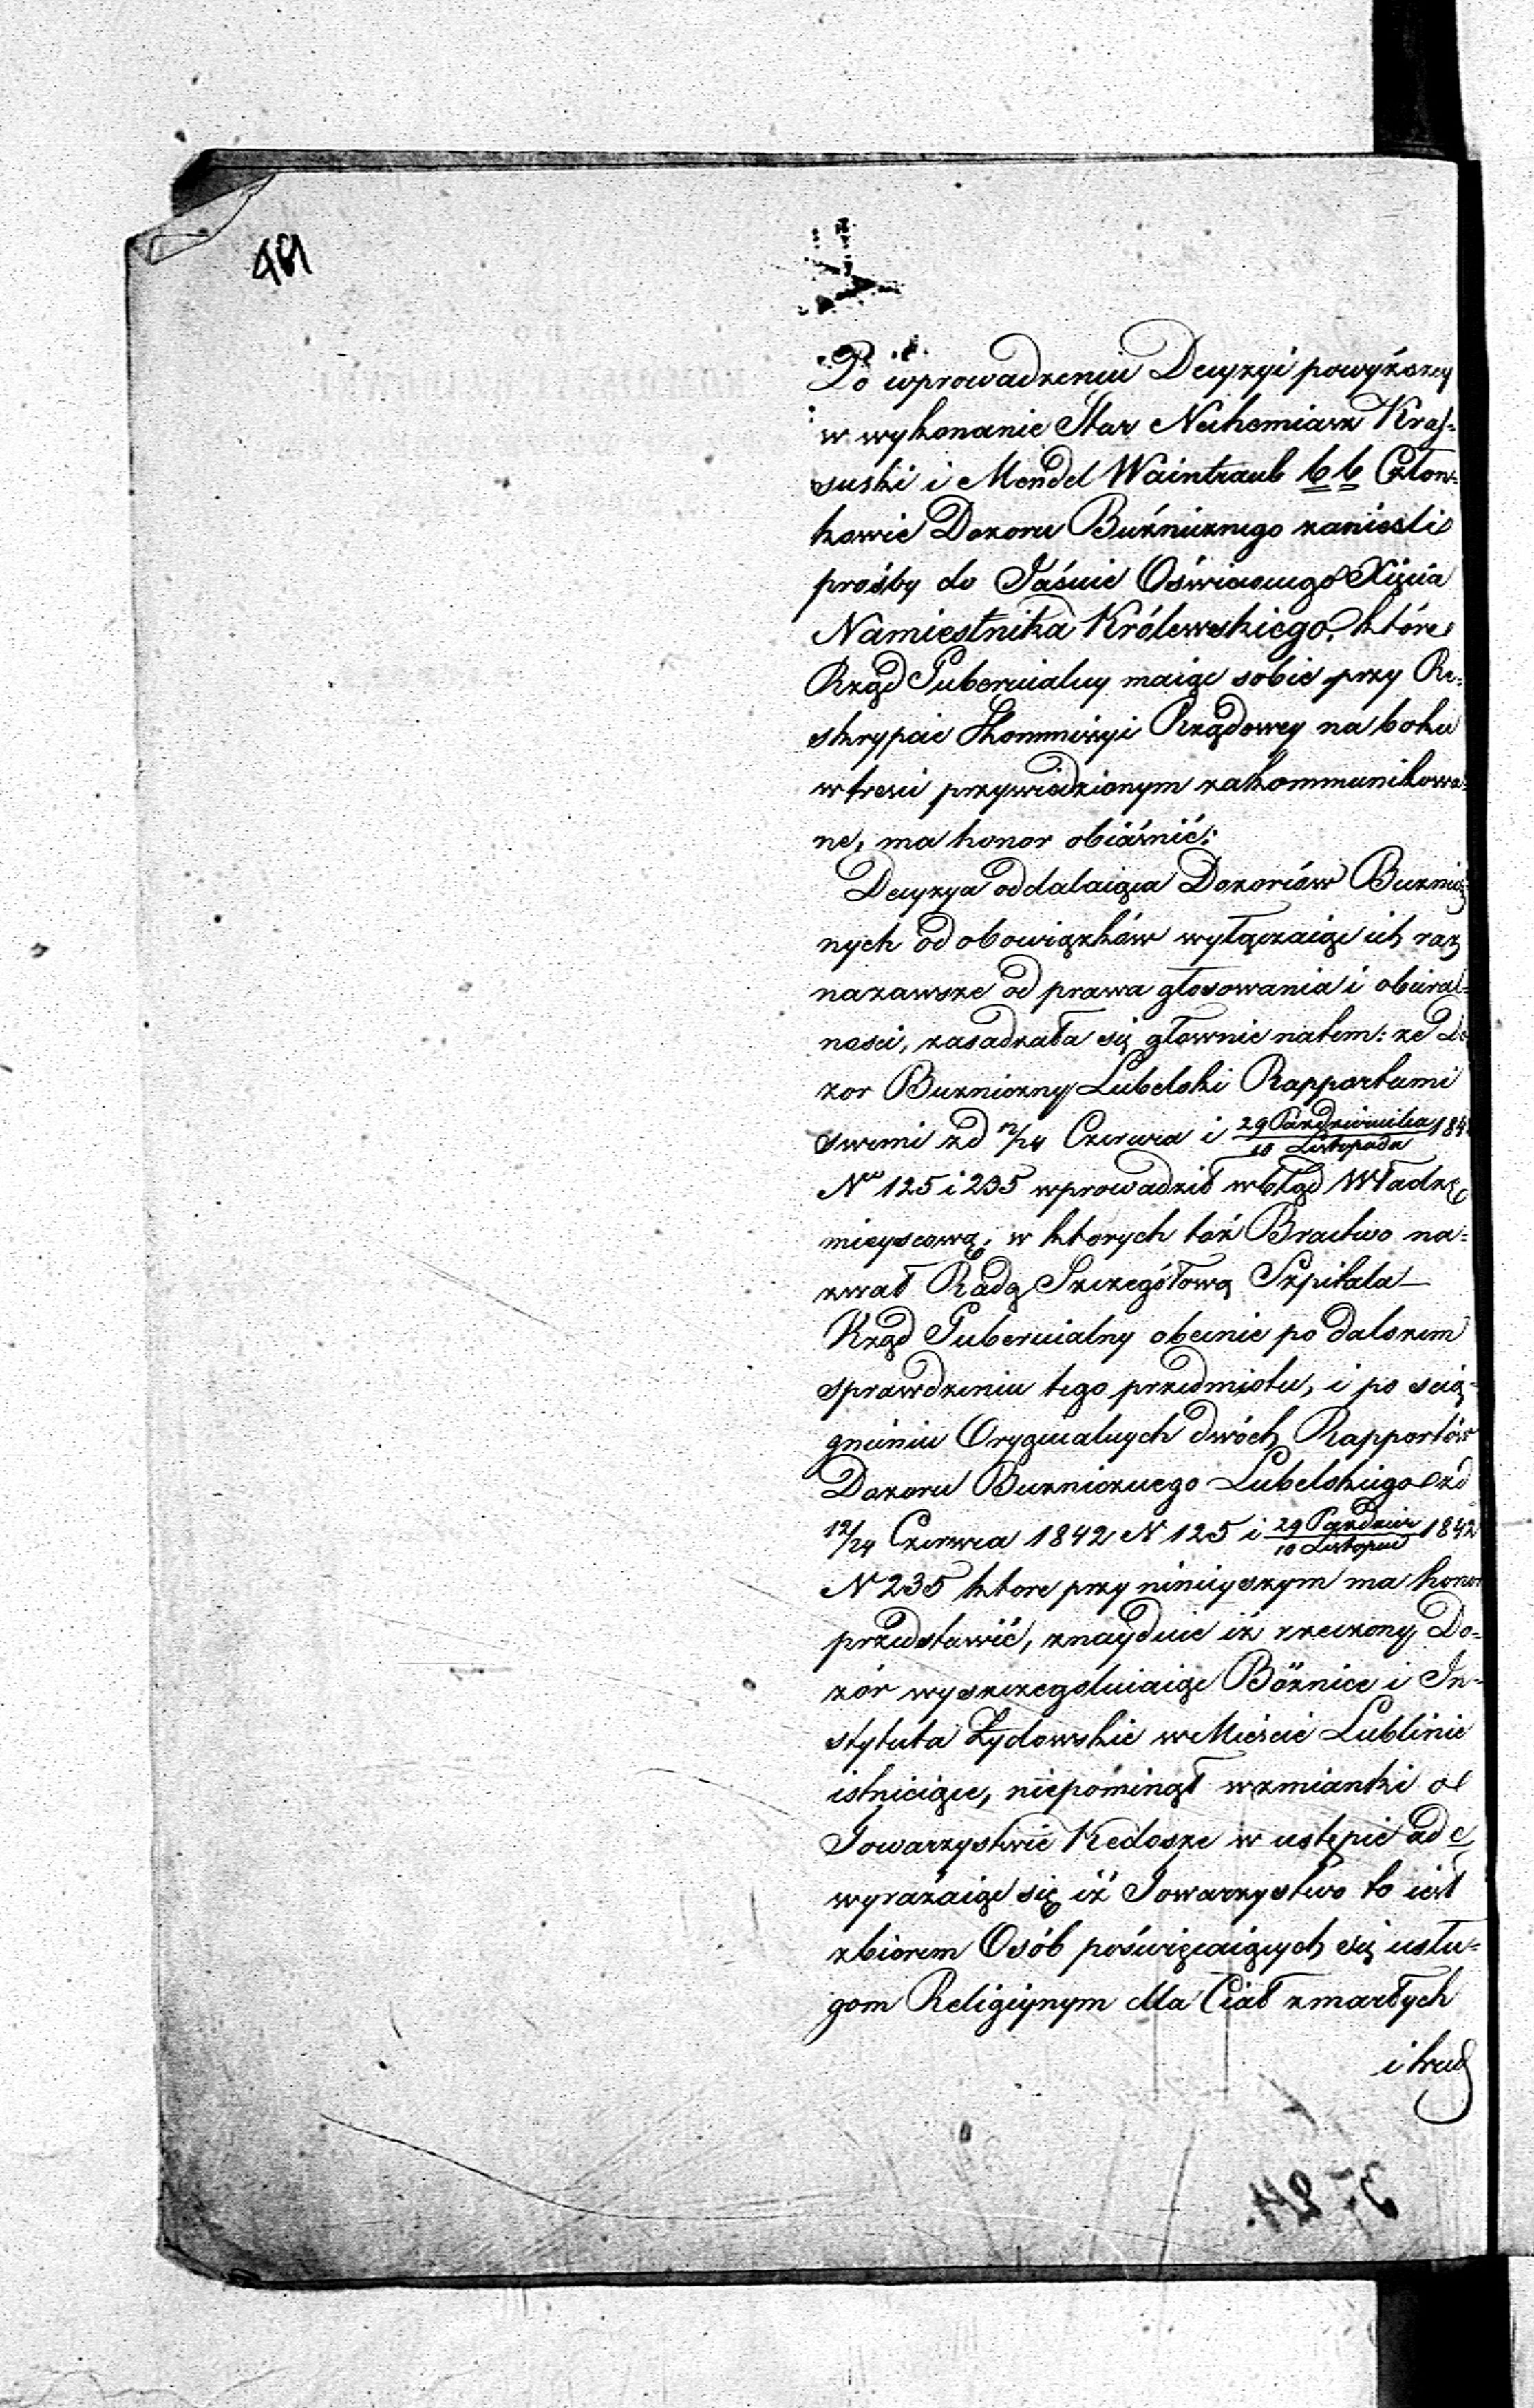 491
Po wprowadzeniu Decyzyi powyższey
w wykonanie Star Nechemiasz Kras-
suski i Mendel Waintraub b b Człon-
kowie Dozoru Buźnicznego zanieśli
prośby do Jaśnie Oświeconego Xięcia
Namiestnika Królewskiego, które
Rząd Gubernialny maiąc sobie przy Re-
skrypcie Kommissyi Rządowey na boku
w treści przywiedzionym zakommunikowa-
ne, ma honor obiaśnić:
Decyzya oddalaiąca Dozorców Buznicz-
nych od obowiązków wyłączaiąc ich raz
nazawsze od prawa głosowania i obieral-
ności, zasadzała się głownie natem: że Do
zor Buzniczny Lubelski Rapportami
swemi zd 12/24 Czerwca i 29 Pazdziernika/10 Listopada 184
No 125 i 235 wprowadził w błąd Władzę
mieyscową; w ktorych toż Bractwo na-
zwał Radą Szczegółową Szpitala —
Rząd Gubernialny obecnie po dalszem
sprawdzeniu tego przedmiotu, i po scią-
gnieniu Oryginalnych dwóch Rapportów
Dozoru Buzniczнego Lubelskiego zd
12/24 Czerwca 1842 N 125 i 29 Pazdzier/10 Listopad 1842
N 235 ktore przy ninieyszym ma honor
przedstawić, znayduie iż rzeczony Do-
zór wyszczegolniaiąc Bóżnice i In-
stytuta Żydowskie w Mieście Lublinie
istnieiące, niepominął wzmianki o
Towarzystwie Kedosze w ustępie ad c
wyrażaiąc się iż Towarzystwo to iest
zbiorem Osób poświęcaiących się usłu-
gom Religiynym dla Ciał zmarłych
i trud